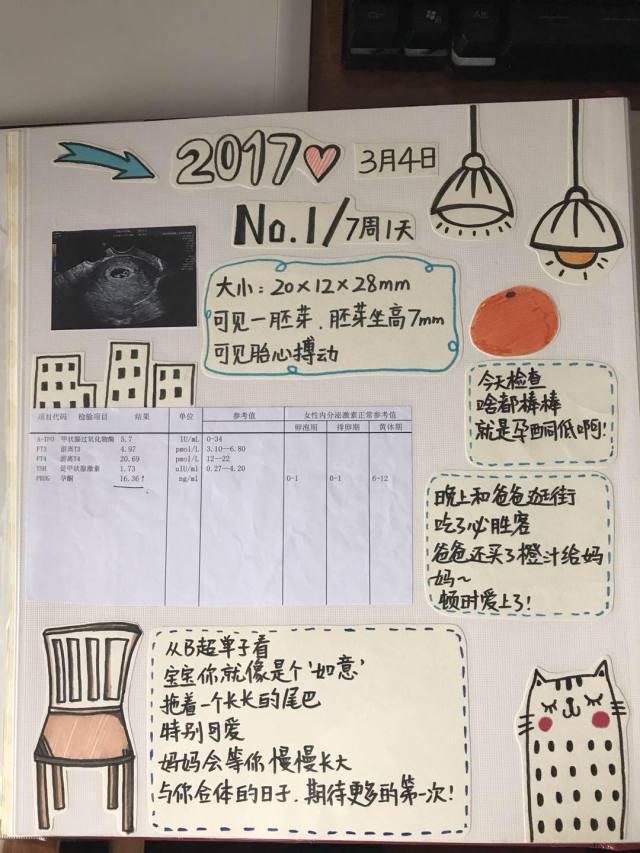 2017
3月4日
No.1/7周1天
大小:20×12×28mm
可见一胚芽、胚芽坐高7mm
可见胎心搏动
今天检查
啥都棒棒
就是孕酮低啊!
项目代码 检验项目 结果 单位 参考值 女性内分泌激素正常参考值
卵泡期 排卵期 黄体期
A-TPO 甲状腺过氧化物酶 5.7 IU/ml 0-34
FT3 游离T3 4.97 pmol/L 3.10--6.80
FT4 游离T4 20.69 pmol/L 12--22
TSH 促甲状腺激素 1.73 uIU/ml 0.27--4.20
PROG 孕酮 16.36! ng/ml 0-1 0-1 6-12
晚上和爸爸逛街
吃了必胜客
爸爸还买了橙汁给妈
妈~
顿时爱上了!
从B超单子看
宝宝你就像是个'如意'
拖着一个长长的尾巴
特别可爱
妈妈会等你慢慢长大
与你合体的日子,期待更多的第一次!